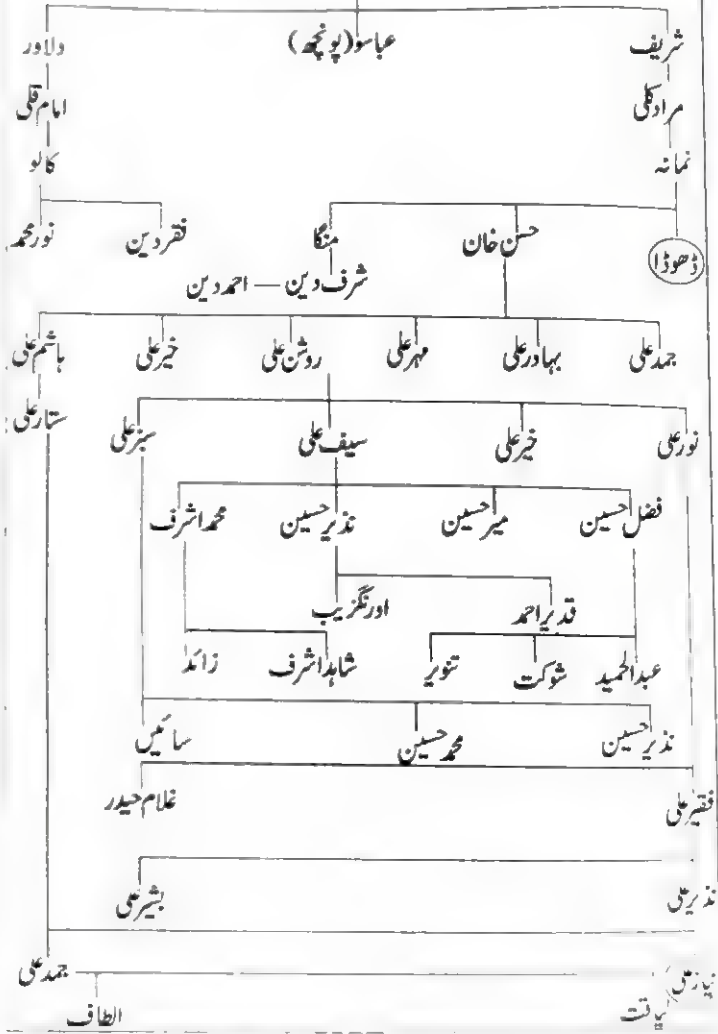 شریف عباسو (پونچھ) دلاور
مراد کلی امام قلی
نمانہ کالو
ڈھوڈا حسن خان منگا فقر دین نور محمد
شرف دین — احمد دین
جمد علی بہادر علی مہر علی روشن علی خیر علی ہاشم علی
نور علی خیر علی سیف علی سبز علی ستار علی
فضل حسین میر حسین نذیر حسین محمد اشرف
قدیر احمد اورنگزیب
عبدالحمید شوکت تنویر شاہد اشرف زائد
نذیر حسین محمد حسین سائیں
فقیر علی غلام حیدر
نذیر علی بشیر علی
نیاز علی جمد علی
الطاف